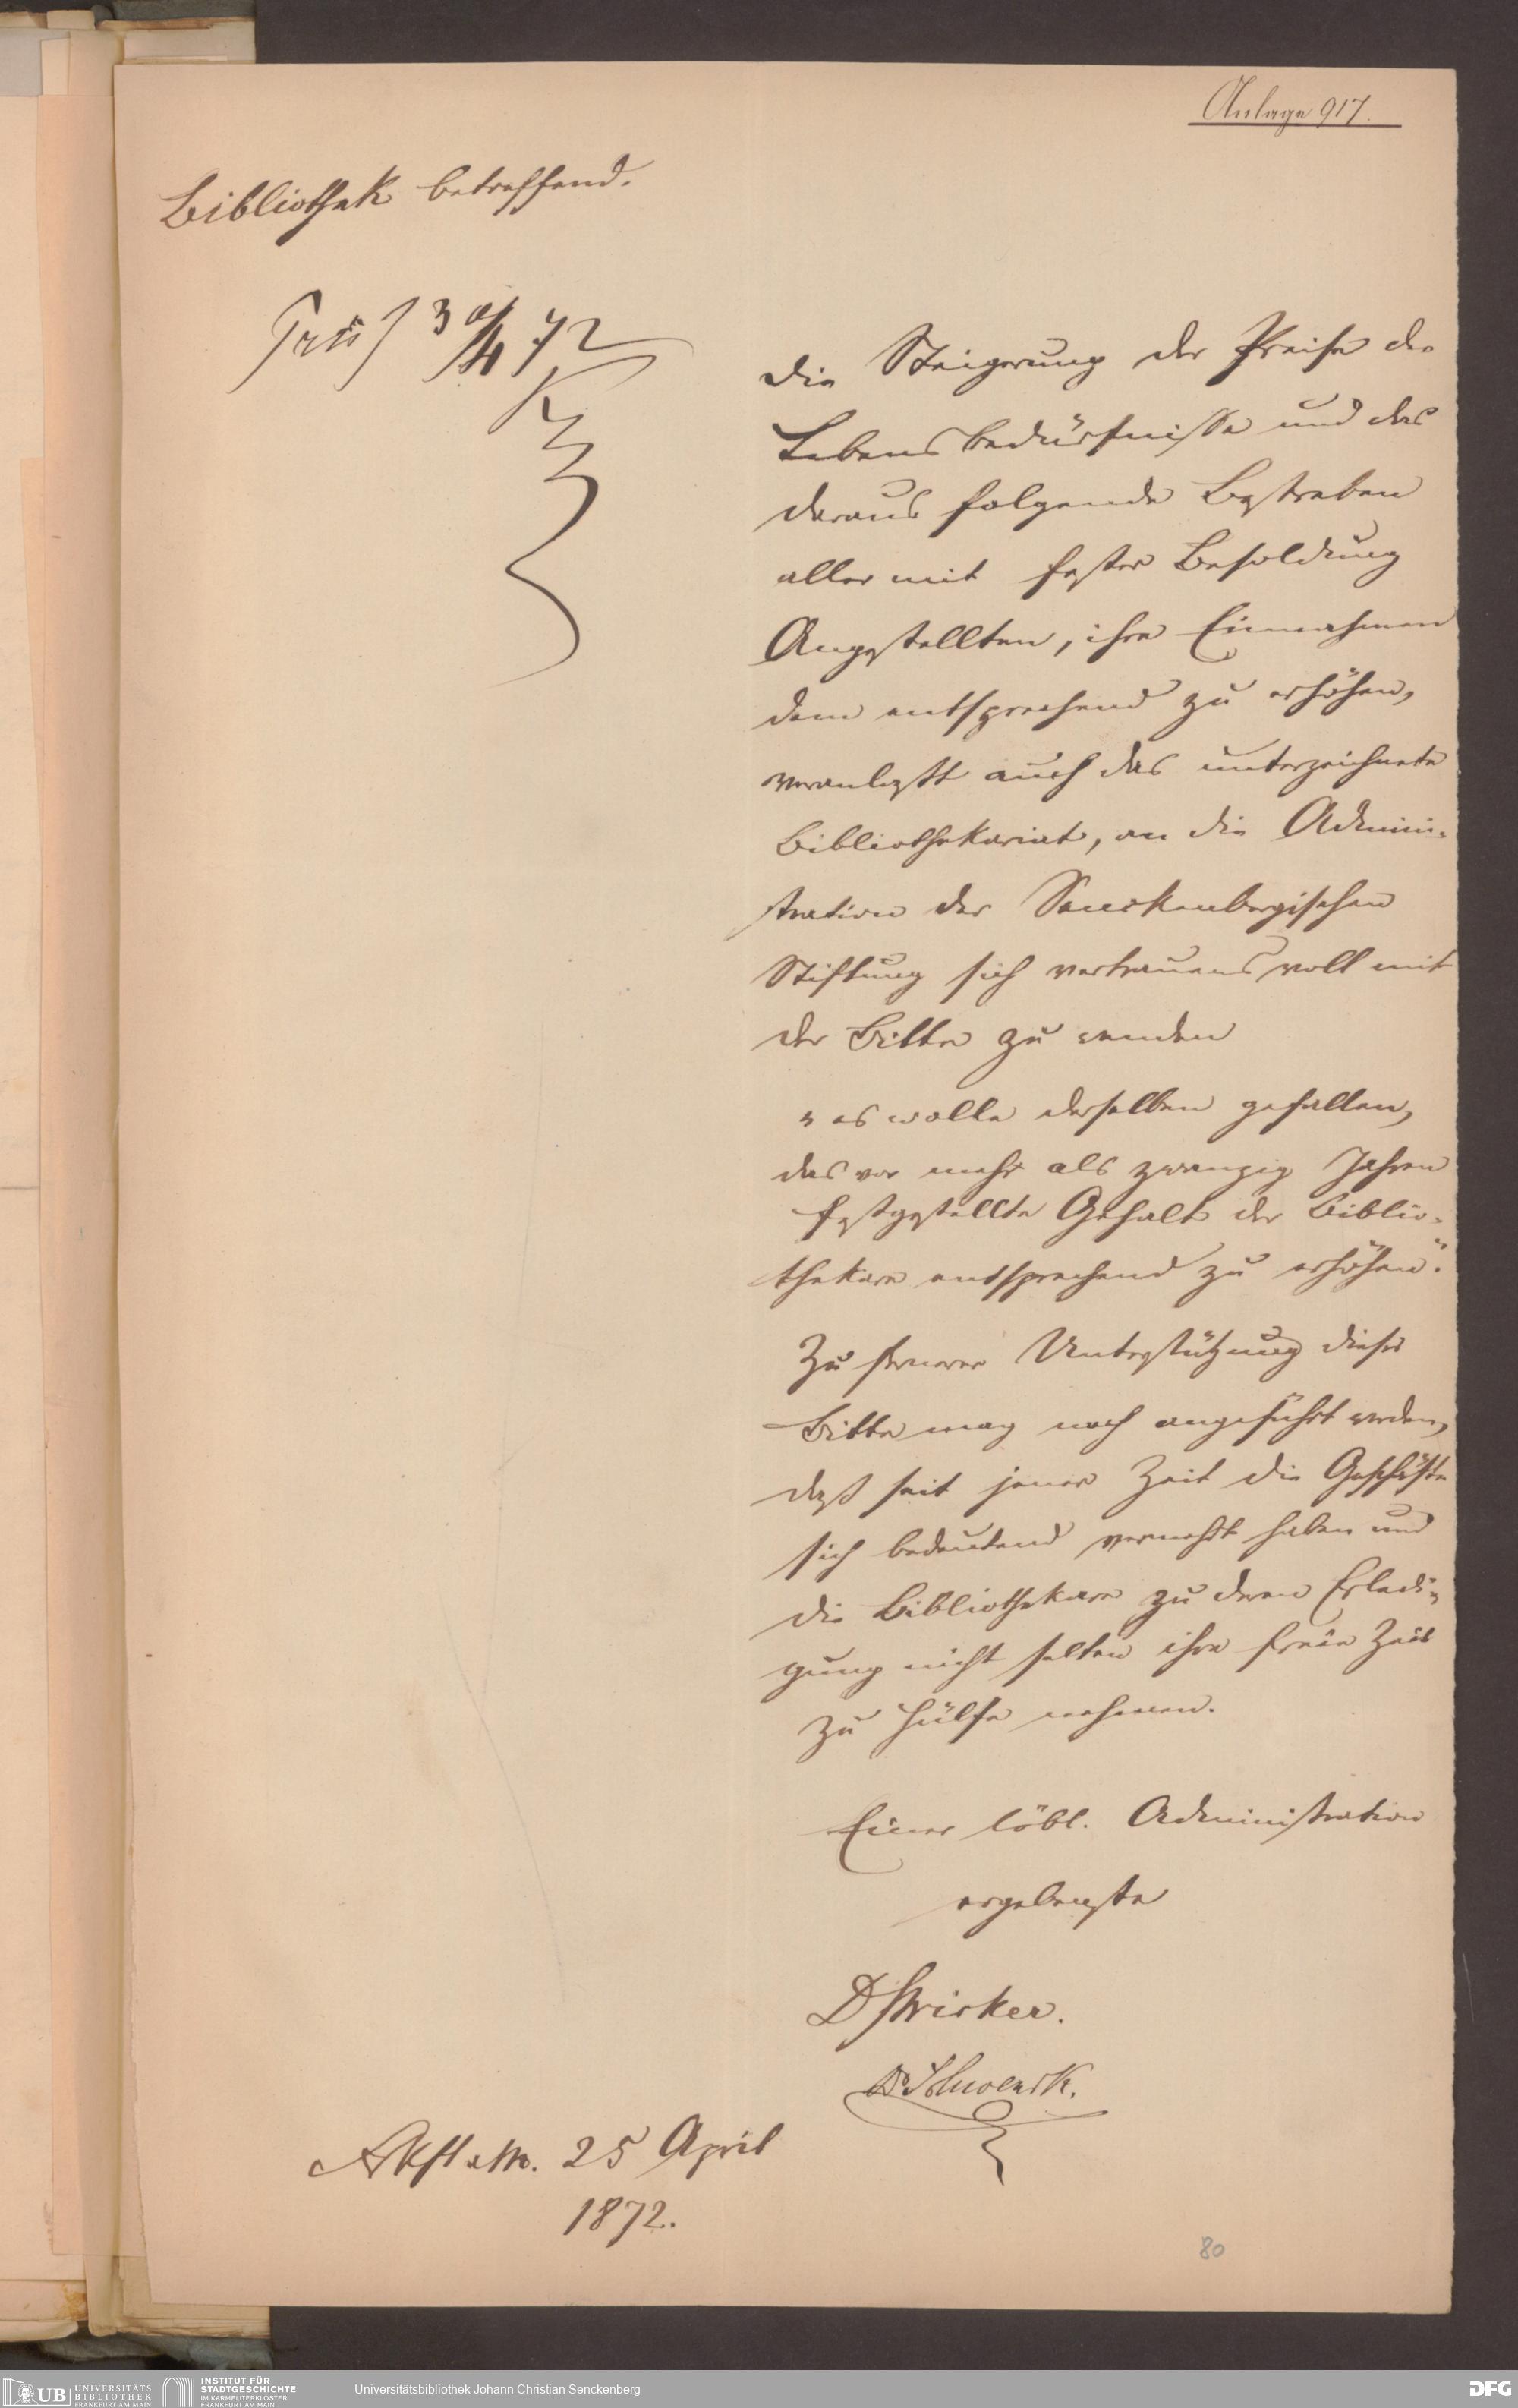 Anlage 917.
Bibliothek betreffend.
Präs 30/4 72
Die Steigerung der Preise der
Lebensbedürfnisse und das
daraus folgende Bestreben
aller mit fester Besoldung
Angestellten, ihre Einnahmen
dem entsprechend zu erhöhen,
veranlaßt auch das unterzeichnete
Bibliothekariat, an die Admini-
stration der Senckenbergischen
Stiftung sich vertrauensvoll mit
der Bitte zu wenden
„es wolle derselben gefallen,
das vor mehr als zwanzig Jahren
festgestellte Gehalt der Biblio-
thekare entsprechend zu erhöhen“.
Zu fernerer Unterstützung dieser
Bitte mag noch angeführt werden,
daß seit jener Zeit die Geschäfte
sich bedeutend vermehrt haben und
die Bibliothekare zu deren Erledi-
gung nicht selten ihre freie Zeit
zu Hülfe nehmen.
Einer löbl. Administration
ergebenste
D Stricker.
Dr Schwenck.
Fkft a/M. 25 April
1872.
80
UB UNIVERSITÄTS
BIBLIOTHEK
FRANKFURT AM MAIN
INSTITUT FÜR
STADTGESCHICHTE
IM KARMELITERKLOSTER
FRANKFURT AM MAIN
Universitätsbibliothek Johann Christian Senckenberg
DFG